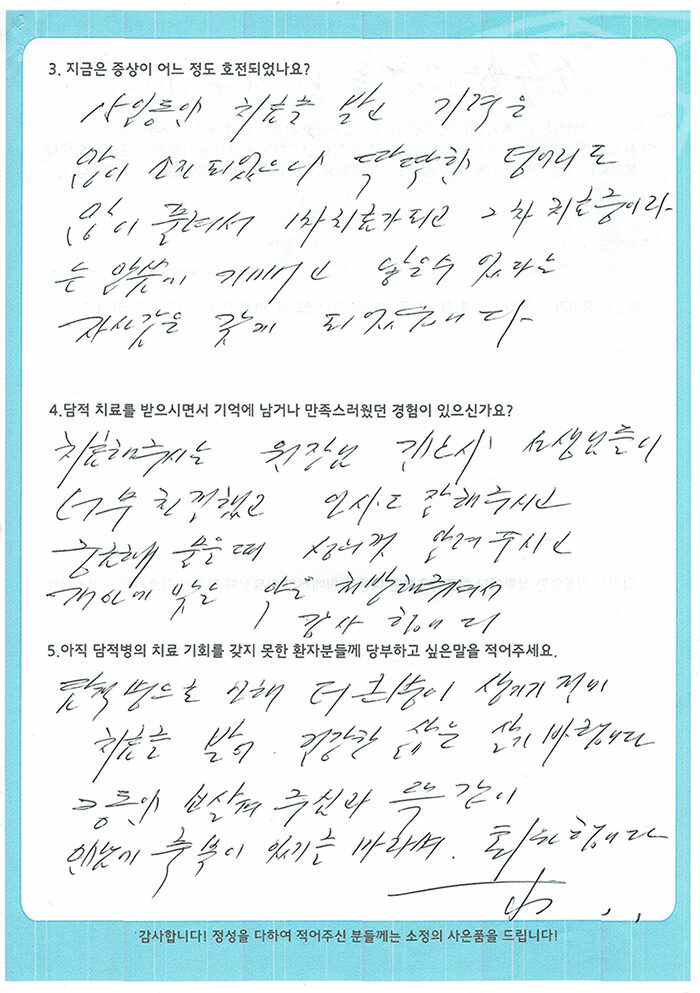 3. 지금은 증상이 어느 정도 호전되었나요?
치료를 받고 기력은
많이 소진 되었으나 딱딱한 덩어리도
많이 풀려서 1차치료가 되고 2차 치료중이라
는 말씀에 낳을수 있다는
자신감을 갖게 되었습니다
4.담적 치료를 받으시면서 기억에 남거나 만족스러웠던 경험이 있으신가요?
치료해주시는 원장님 간호사 선생님들이
너무 친절했고 인사도 잘해주시고
궁금해 물을때 성의껏 알려 주시고
개인에 맞는 약을 처방해주셔서
감사 합니다
5.아직 담적병의 치료 기회를 갖지 못한 환자분들께 당부하고 싶은말을 적어주세요.
담적병으로 인해 더 큰병이 생기기 전에
치료를 받아 건강한 삶을 살기 바랍니다
그동안 보살펴 주신과
축복이 있기를 바라며. 합니다
감사합니다! 정성을 다하여 적어주신 분들께는 소정의 사은품을 드립니다!